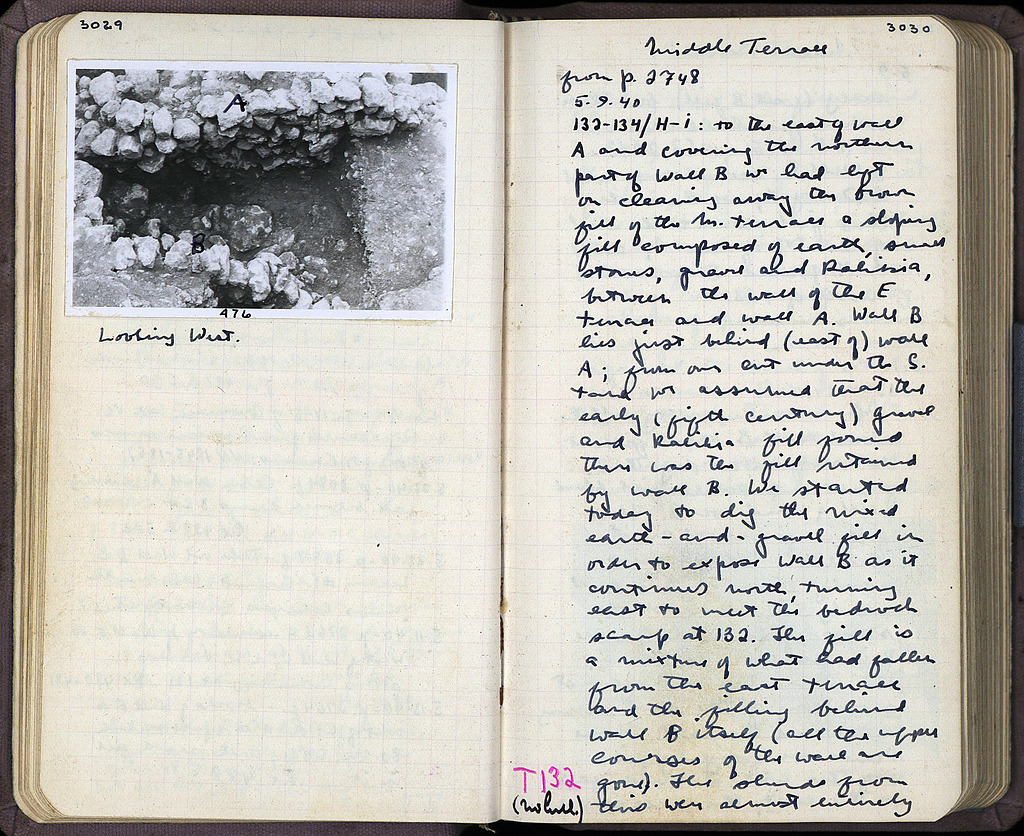 3029
A
B
476
Looking West.
3030
Middle Terrace
from p. 2748
5.9.40
132-134/H-i: to the east of wall
A and covering the northern
part of Wall B we had left
on clearing away the brown
fill of the M. terrace a sloping
fill composed of earth, small
stones, gravel and Kalisia,
between the wall of the E
terrace and wall A. Wall B
lies just behind (east of) wall
A; from our cut under the S.
we assumed that the
early (fifth century) gravel
and Kalisia fill found
there was the fill retained
by wall B. We started
today to dig the mixed
earth-and-gravel fill in
order to expose Wall B as it
continues north, turning
east to meet the bedrock
scarp at 132. The fill is
a mixture of what had fallen
from the east terrace
and the filling behind
Wall B itself (all the upper
courses of the wall are
gone). The sherds from
T132
this were almost entirely